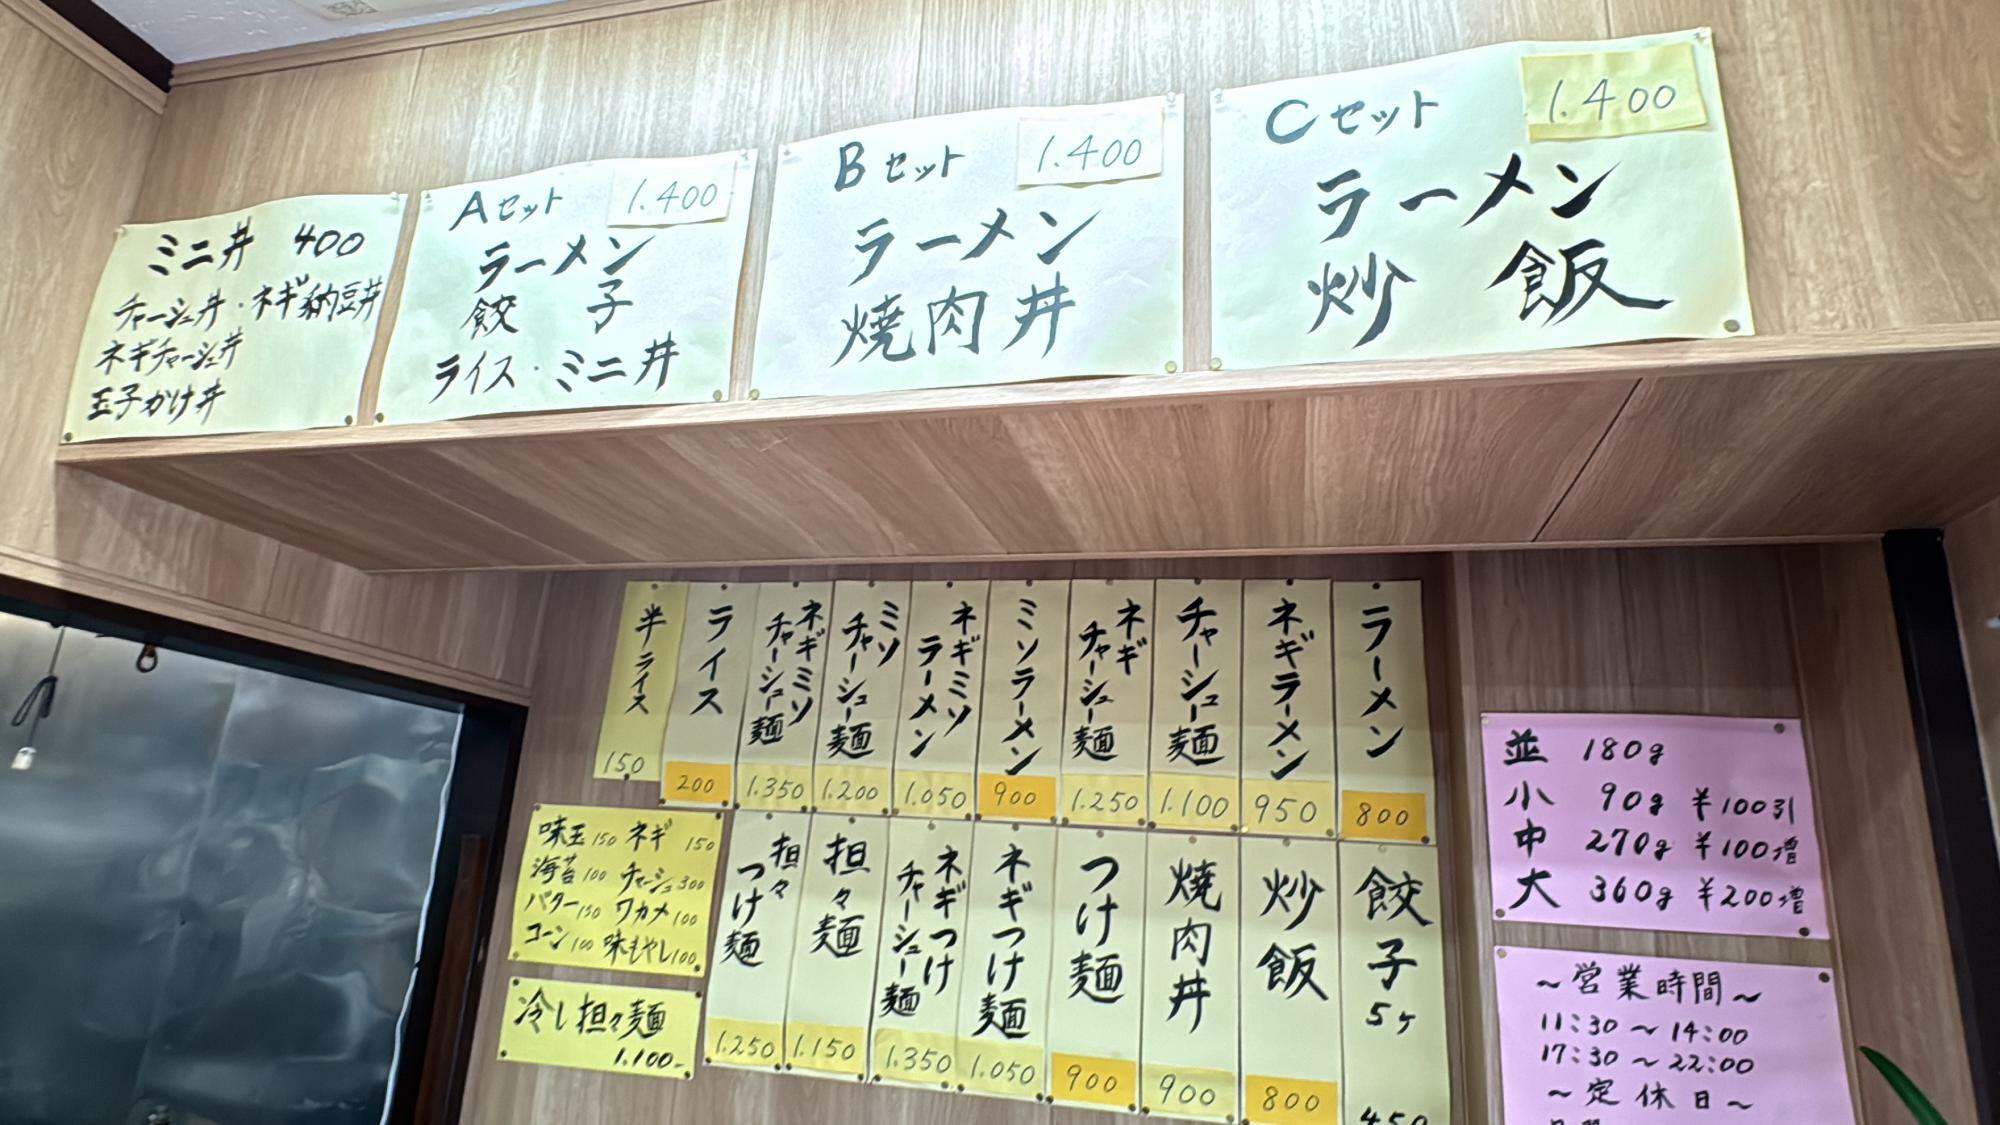 ミニ丼 400
チャーシュ丼・ネギ納豆丼
ネギチャーシュ丼
玉子かけ丼
Aセット 1.400
ラーメン
餃子
ライス・ミニ丼
Bセット 1.400
ラーメン
焼肉丼
Cセット 1.400
ラーメン
炒飯
ラーメン
800
ネギラーメン
950
チャーシュー麺
1.100
ネギ
チャーシュー麺
1.250
ミソラーメン
900
ネギミソ
ラーメン
1.050
ミソ
チャーシュー麺
1.200
ネギミソ
チャーシュー麺
1.350
ライス
200
半ライス
150
餃子5ヶ
450
炒飯
800
焼肉丼
900
つけ麺
900
ネギつけ麺
1.050
ネギつけ
チャーシュー麺
1.350
担々麺
1.150
担々
つけ麺
1.250
味玉150 ネギ 150
海苔100 チャーシュ300
バター150 ワカメ100
コーン100 味もやし100
冷し担々麺
1.100-
並 180g
小 90g ¥100引
中 270g ¥100増
大 360g ¥200増
～営業時間～
11:30～14:00
17:30～22:00
～定休日～